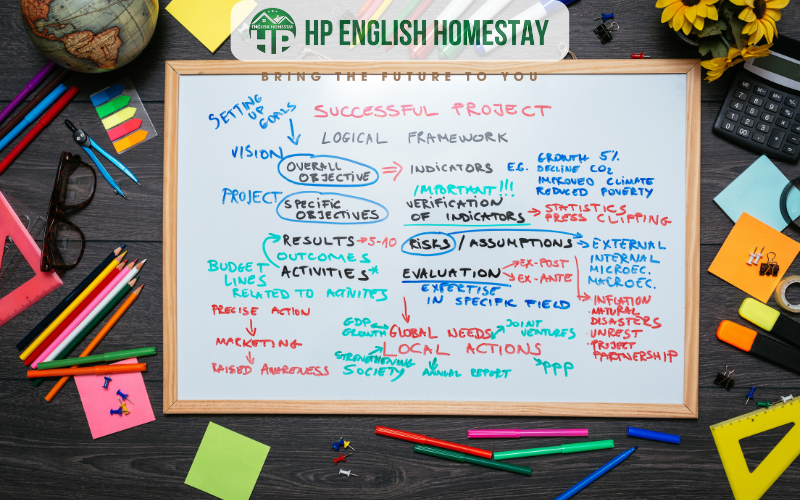 HP ENGLISH HOMESTAY
BRING THE FUTURE TO YOU
SETTING UP GOALS
SUCCESSFUL PROJECT
LOGICAL FRAMEWORK
VISION
OVERALL OBJECTIVE
INDICATORS E.G.
GROWTH 5%
DECLINE CO2
IMPROVED CLIMATE
REDUCED POVERTY
PROJECT
SPECIFIC OBJECTIVES
IMPORTANT!!!
VERIFICATION
OF INDICATORS
STATISTICS
PRESS CLIPPING
RESULTS 5-10
OUTCOMES
ACTIVITIES*
RISKS / ASSUMPTIONS
EXTERNAL
INTERNAL
MICROEC.
MACROEC.
BUDGET
LINES
RELATED TO ACTIVITES
EVALUATION
EX-POST
EX-ANTE
EXPERTISE
IN SPECIFIC FIELD
INFLATION
NATURAL
DISASTERS
UNREST
PROJECT
PARTNERSHIP
PRECISE ACTION
MARKETING
RAISED AWARENESS
GDP
GROWTH
GLOBAL NEEDS
LOCAL ACTIONS
JOINT
VENTURES
STRENGTHENING
SOCIETY
ANNUAL REPORT
PPP